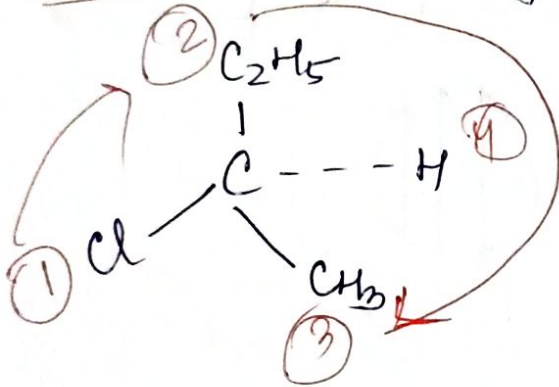 ② C2H5
C - - - H ④
① Cl
CH3
③